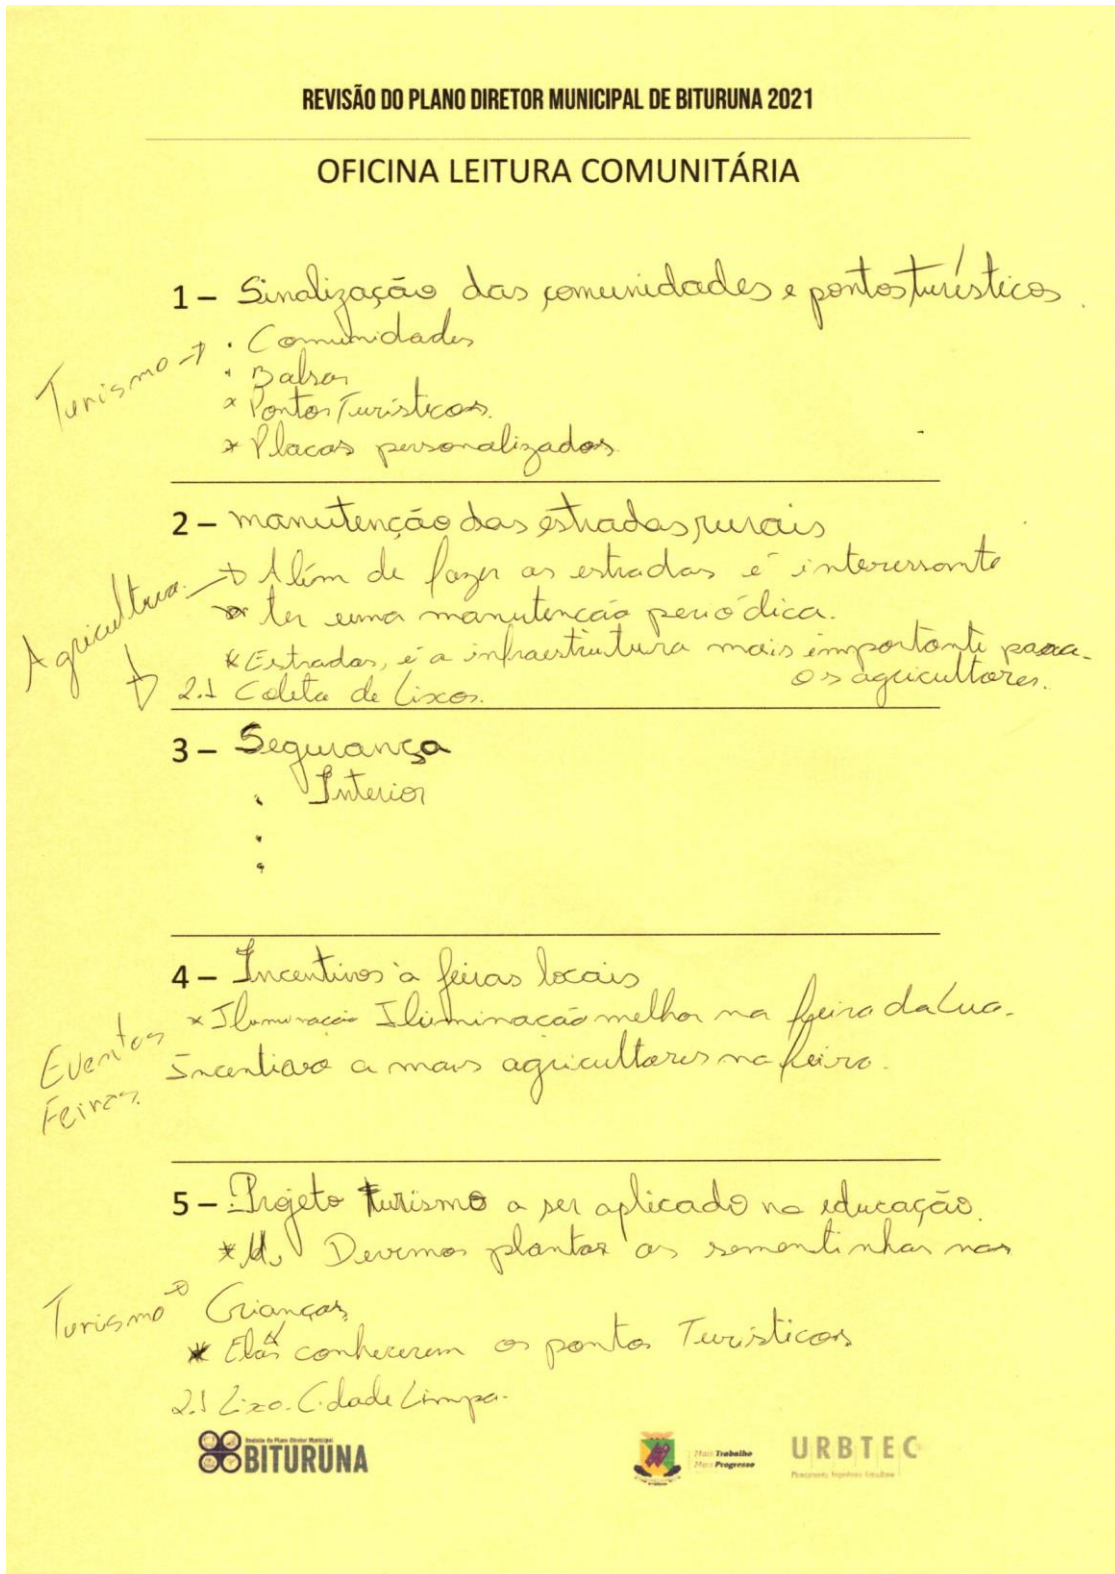 REVISÃO DO PLANO DIRETOR MUNICIPAL DE BITURUNA 2021
OFICINA LEITURA COMUNITÁRIA
1 – Sinalização das comunidades e pontos turísticos.
Turismo → • Comunidades
• Balsas
* Pontos Turísticos.
* Placas personalizadas.
2 – manutenção das estradas rurais
Agricultura → Além de fazer as estradas é interessante
ter uma manutenção periódica.
* Estradas, é a infraestrutura mais importante para
os agricultores.
2.1 Coleta de Lixos.
3 – Segurança
• Interior
•
•
4 – Incentivos à feiras locais
* Iluminação Iluminação melhor na feira da Lua.
Eventos
Incentivo a mais agricultores na feira.
Feiras.
5 – Projeto turismo a ser aplicado na educação.
* Devemos plantar as sementinhas nas
Turismo → Crianças
* Elas conhecerem os pontos Turísticos
2.1 Lixo. Cidade Limpa.
Revisão do Plano Diretor Municipal
BITURUNA
Mais Trabalho
Mais Progresso
URBTEC